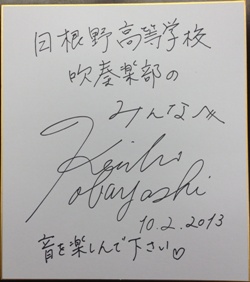 日根野高等学校
吹奏楽部の
みんなへ
Keiko
Kobayashi
10.2.2013
音を楽しんで下さい♡